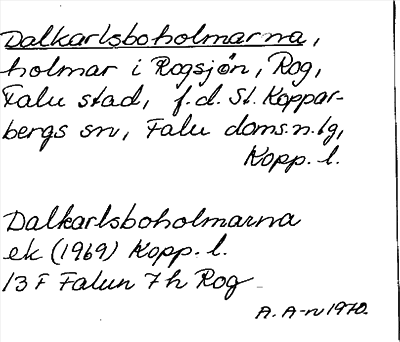 Dalkarlsboholmarna,
holmar i Rogsjön, Rog,
Falu stad, f.d. St. Koppar-
bergs sn, Falu doms.n. lg,
Kopp. l.
Dalkarlsboholmarna
ek (1969) Kopp. l.
13 F Falun 7 h Rog
A. A-n 1970.